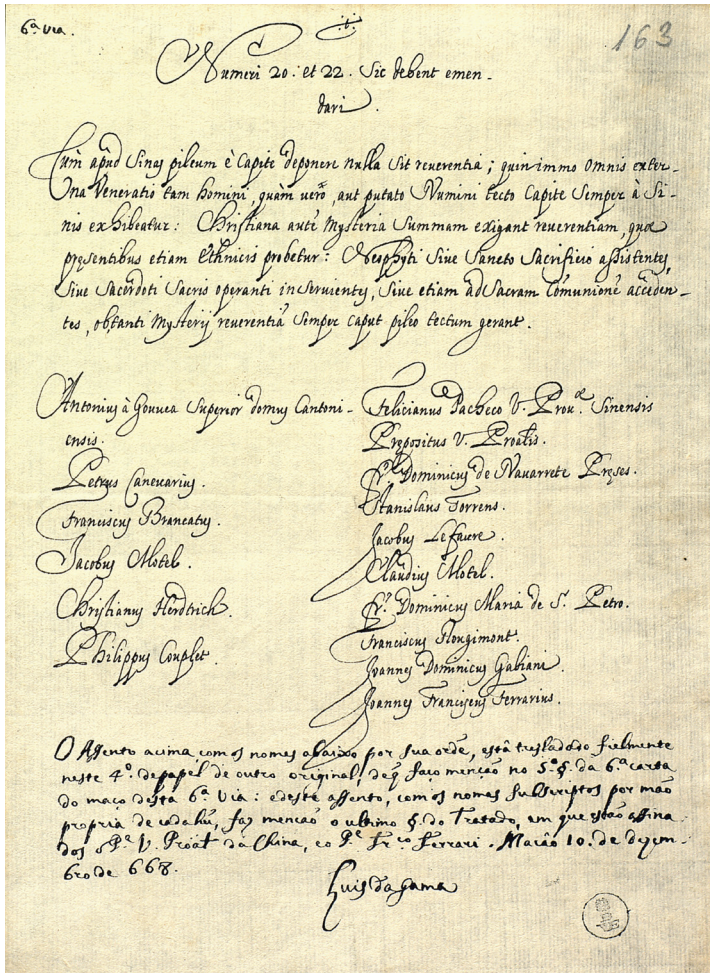 6.ª Via.
163
Numeri 20. et 22. Sic debent emen-
dari.
Cum apud Sinas pileum è Capite deponere nulla Sit reuerentia; quin immo omnis exter-
na Veneratio tam homini, quàm uero, aut putato Numini tecto Capite Semper à Si-
nis exhibeatur: Christiana autē Mysteria Summam exigant reuerentiam, quæ
pręsentibus etiam Ethnicis probetur: Neophyti Siue Sancto Sacrificio assistentes,
Siue Sacerdoti Sacris operanti inseruientes, Siue etiam ad Sacram Comunionē acceden-
tes, ob tanti Mysterij reuerentiā Semper caput pileo tectum gerant.
Antonius à Gouuea Superior domus Cantoni-
ensis.
Petrus Caneuarius.
Franciscus Brancatus.
Jacobus Motel.
Christianus Herdtrich.
Philippus Couplet.
Felicianus Pacheco V. Prou.æ Sinensis
Prępositus V. Proālis.
Fr. Dominicus de Nauarrete Pręses.
Stanislaus Torrens.
Jacobus Le Faure.
Claudius Motel.
Fr. Dominicus Maria de S. Petro.
Franciscus Rougimont.
Joannes Dominicus Gabiani.
Joannes Franciscus Ferrarius.
O Assento acima, com os nomes abaixo por sua ordē, està tresladado fielmente
neste 4.º de papel de outro original, de q̃ faço menção no 5.º §. da 6.ª carta
do maço desta 6.ª Via: e deste assento, com os nomes subscriptos por mão
propria de cada hū, faz menção o ultimo §. do Tratado, em que estão assina
dos o P.e V. Proāl da China, e o P.e Fr.co Ferrari. Macâo 10. de dezem-
bro de 668.
Luis da Gama